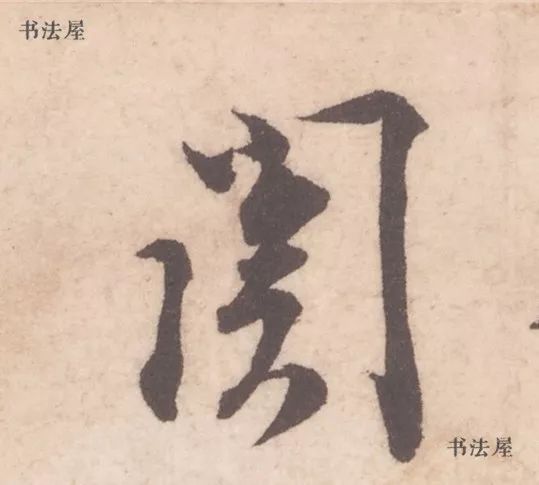 书法屋
関
书法屋